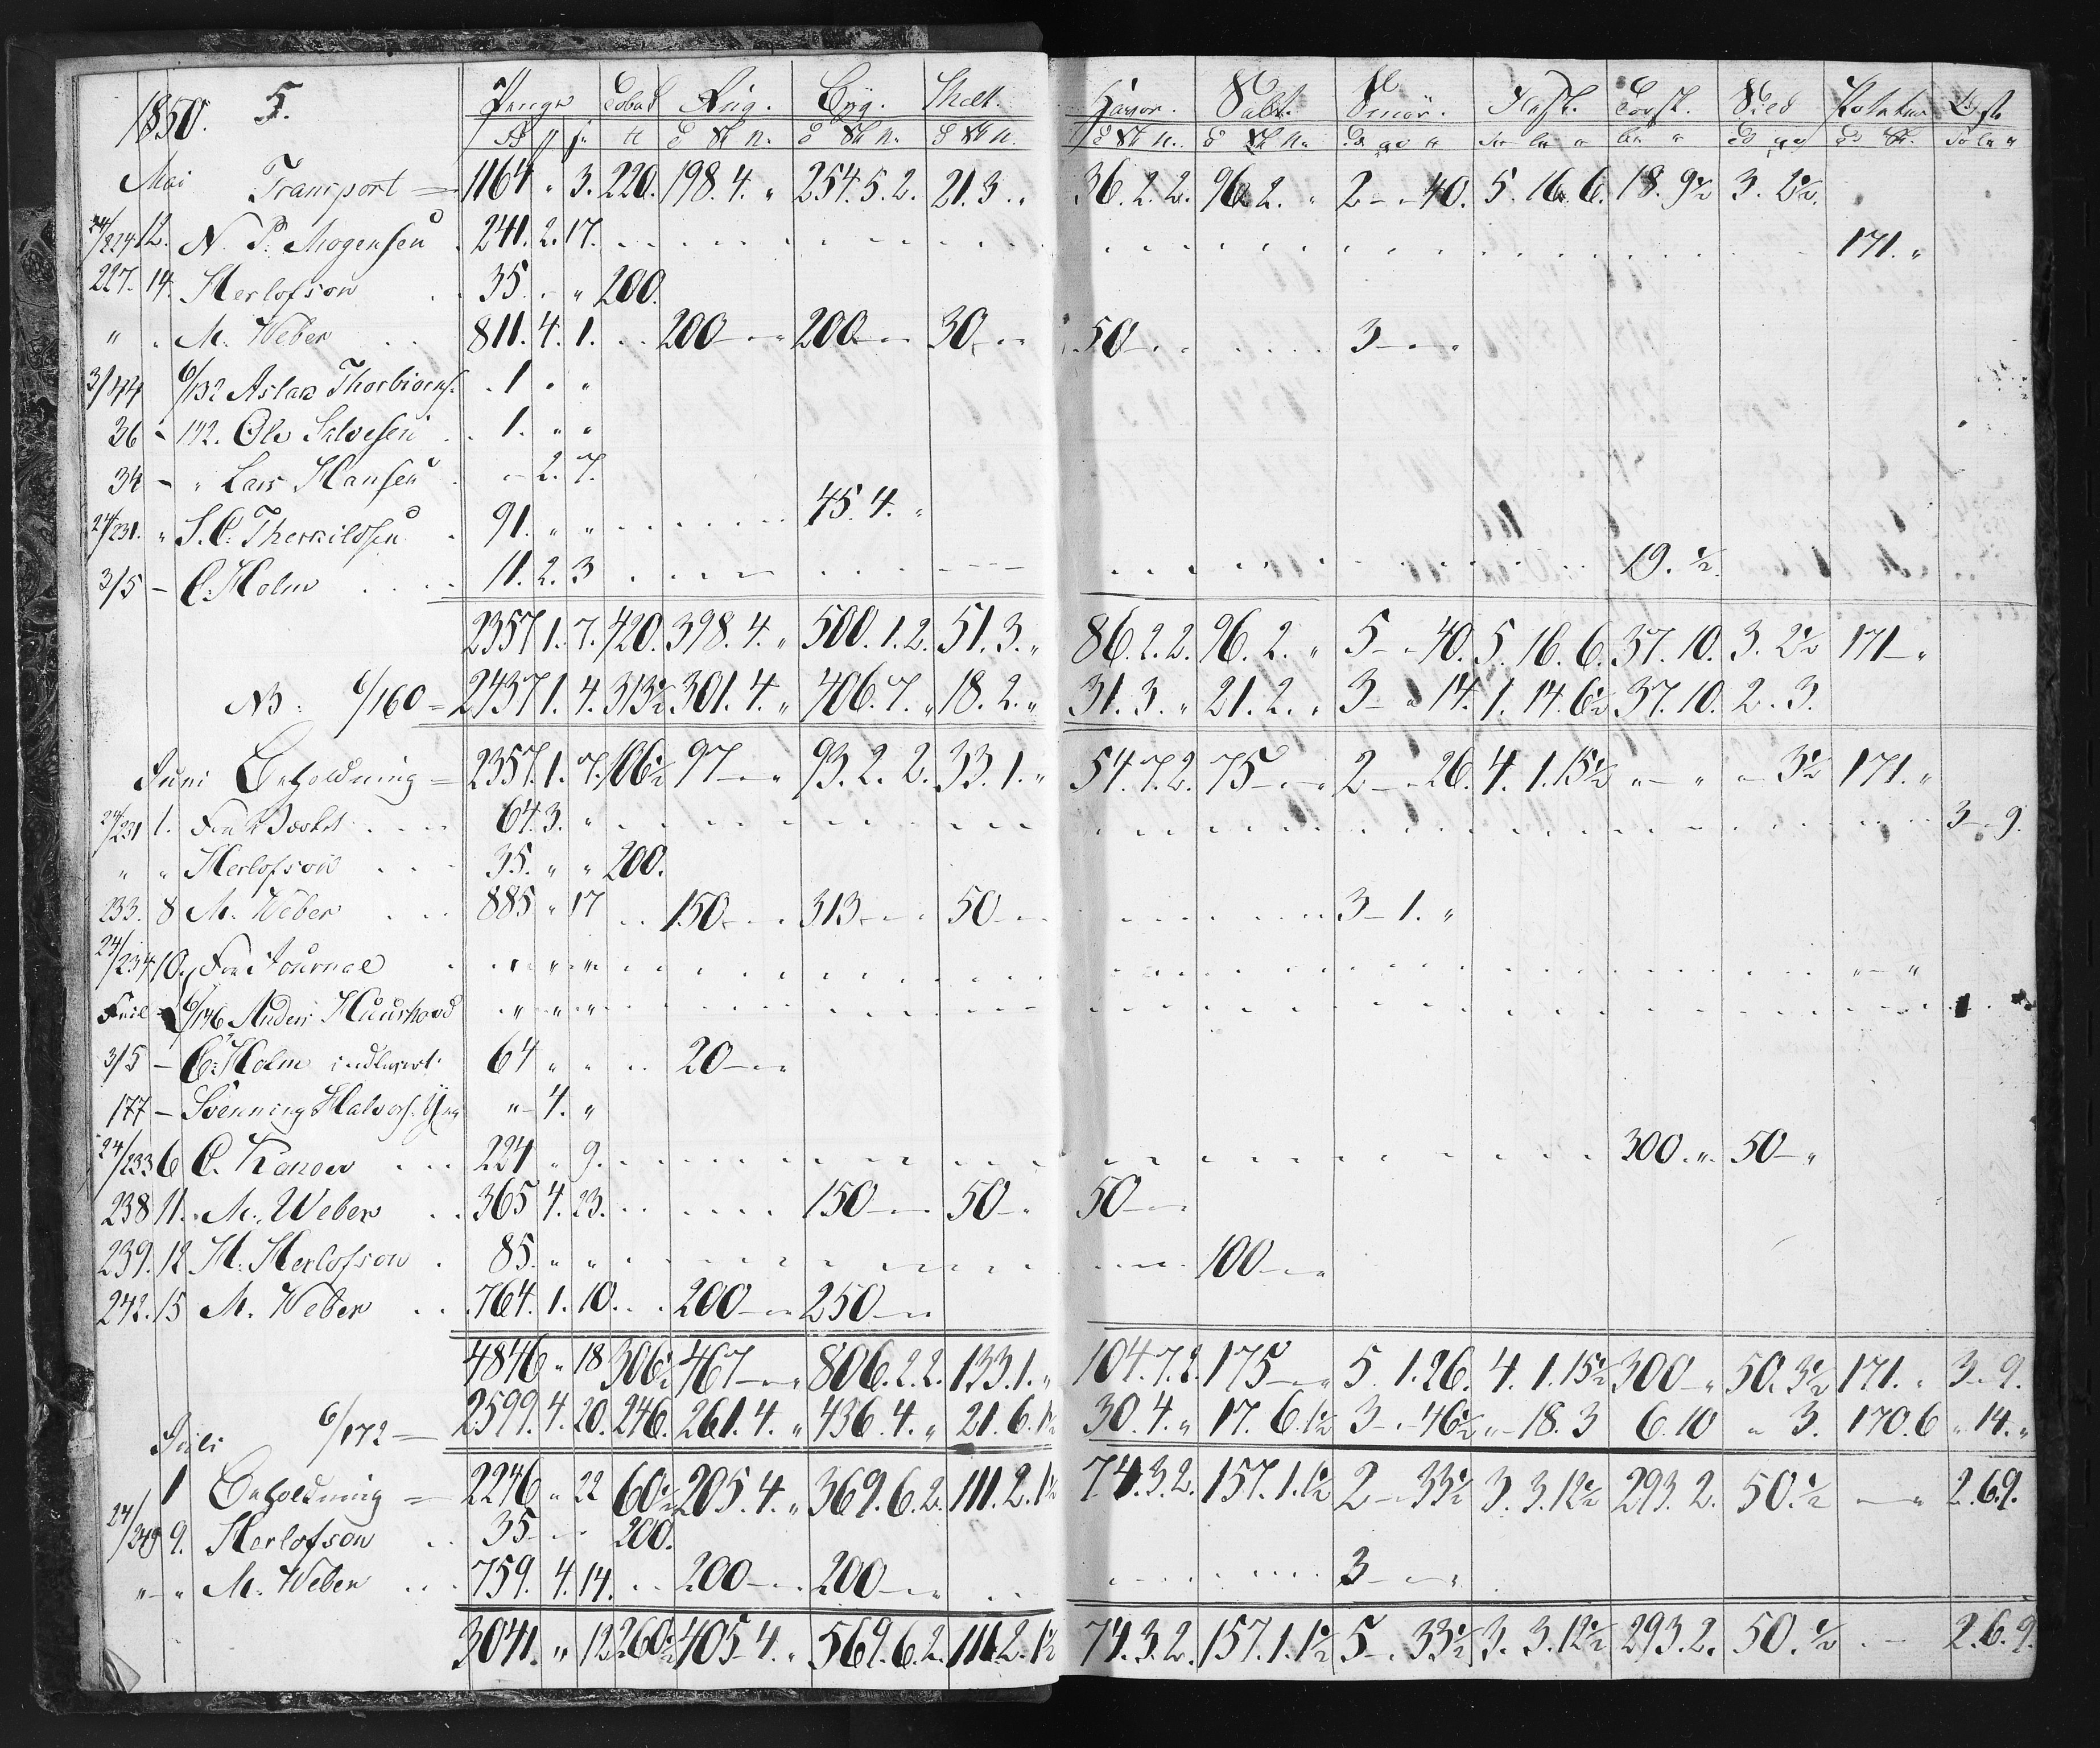 1850. 5. Penge Tobak Rüg. Byg. Malt. Haver. Salt. Smör. Flesk. Torsk. Sild Potateter
Mai Transport 1164 „ 3. 220. 198. 4. „ 254. 5. 2. 21. 3. „ 36. 2. 2. 96. 2. „ 2 - „ 40. 5. 16. 6. 18. 9½ 3. 2½.
24/224 12. N. P. Mogensen 241. 2. 17. 171. „
227. 14. Herlofson 35. - „ 200.
„ „ M. Weber 811. 4. 1. 200 - „ 200 - „ 30 - „ 50 - „ 3 - „
3/44 6/132 Aslak Thorbiorns. 1 „ „
36 - 142. Ole Salvesen 1. „ „
34 - „ Lars Hansen „ 2. 7.
24/231. „ S. C. Therkildsen 91. „ „ 45. 4. „
3/5 - C. Holm 11. 2. 3 19. ½
2357 1. 7. 420. 398. 4. „ 500. 1. 2. 51. 3. „ 86. 2. 2. 96. 2. „ 5 - „ 40. 5. 16. 6. 37. 10. 3. 2½ 171 - „
N3. 6/160 = 2437 1. 4. 313½ 301. 4. „ 406. 7. „ 18. 2. „ 31. 3. „ 21. 2. „ 3 - „ 14. 1. 14. 6½ 37. 10. 2. 3.
Juni Beholdning = 2357. 1. 7. 106½ 97 - „ 93. 2. 2. 33. 1. „ 54. 7. 2. 75 - „ 2 - „ 26. 4. 1. 15½ „ - „ „ - 3½ 171. „
24/231 1. 64. 3. „ 3 - 9.
„ „ Herlofson 35. „ „ 200.
233. 8 M. Weber 885 „ 17 150 - „ 313 - „ 50 - „ 3 - 1. „
24/234 10. For Journal „ „ „ „ - „
Feil - 6/146 Anders Huushovd „ „ „
3/5 - C. Holm indleveret 64 „ „ 20 - „
177 - Svenning Halvors. „ - 4. „
24/233 6 C. Konow 224 „ 9. 300. „ 50 - „
238 11. M. Weber 365 4. 23. 150 - „ 50 - „ 50 - „
239. 12 H. Herlofson 85. „ „ 100 - „
242. 15 M. Weber 764. 1. 10. 200 - „ 250 - „
4846 „ 18 306½ 467 - „ 806. 2. 2. 133. 1. „ 104. 7. 2. 175 - „ 5. 1. 26. 4. 1. 15½ 300 - „ 50. 3½ 171. „ 3 - 9.
6/172 - 2599. 4. 20. 246. 261. 4. „ 436. 4. „ 21. 6. 1½ 30. 4. „ 17. 6. 1½ 3 - „ 46½ „ - 18. 3 6. 10 „ 3. 170. 6 „ 14. „
Juli
1 Beholdning = 2246 „ 22 60½ 205. 4. „ 369. 6. 2. 111. 2. 1½ 74. 3. 2. 157. 1. 1½ 2 - „ 33½ 3. 3. 12½ 293. 2. 50. ½ - „ 2. 6. 9.
24/249 9. Herlofson 35 - „ 200.
„ - „ M. Weber 759. 4. 14. 200 - „ 200 - „ 3 - „
3041. „ 12 260½ 405 - 4. „ 569. 6. 2. 111. 2. 1½ 74. 3. 2. 157. 1. 1½ 5 - „ 33½ 3. 3. 12½ 293. 2. 50. ½ „ - 2. 6. 9.